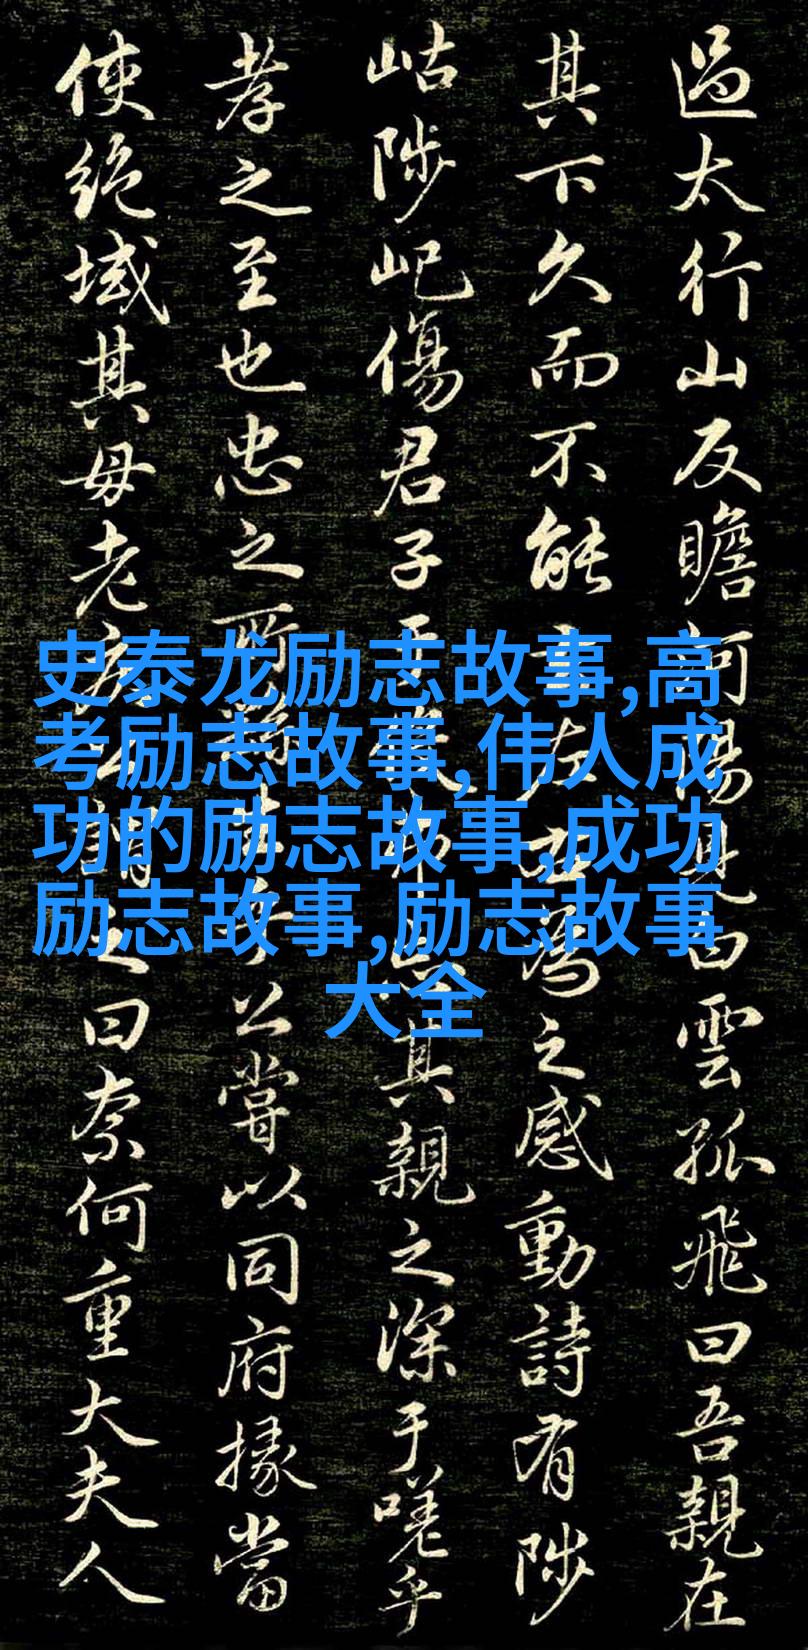 過太行山反瞻河陽見白雲孤飛曰吾親在
其下久而不能去左右為之感動詩有陟
岵陟屺傷君子于役弗忘其親之深于嗟乎
孝之至也忠之所繇生乎公嘗以同府掾當
使絕域其母老疾公謂之曰奈何重大夫人
史泰龙励志故事,高
考励志故事,伟人成
功的励志故事,成功
励志故事,励志故事
大全